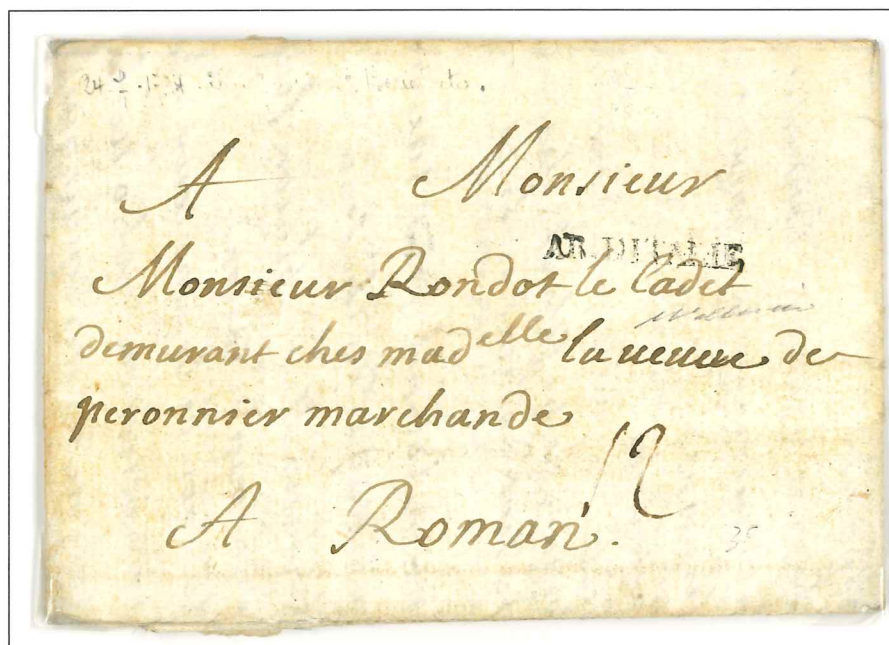 A Monsieur
AR. D'ITALIE
Monsieur Rondot le Cadet
demurant ches mad elle la veuue de
peronnier marchande
12
A Roman.
35